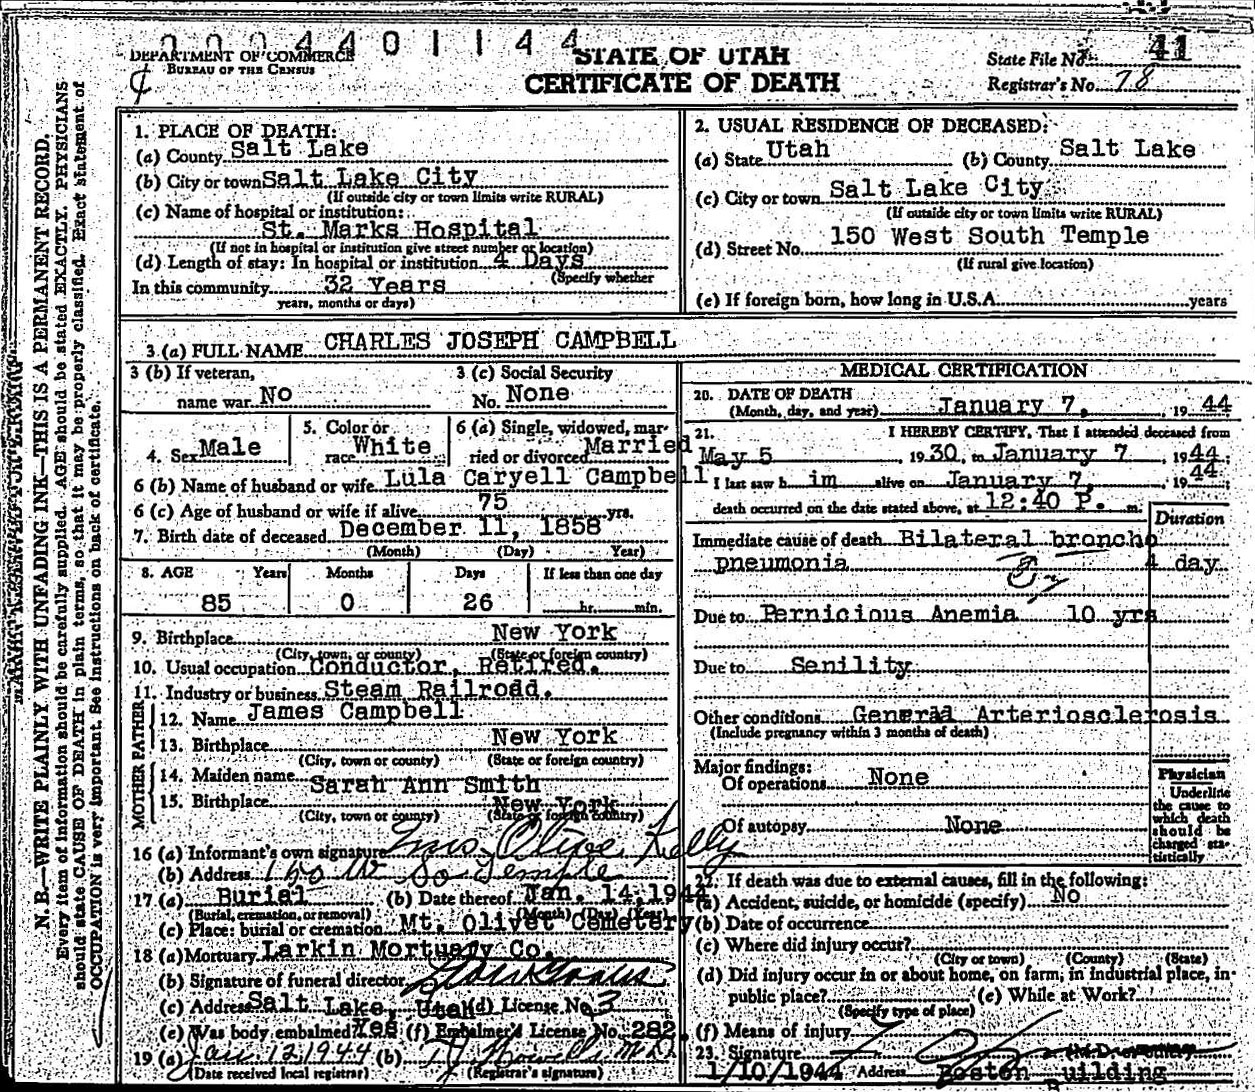 0004401144
DEPARTMENT OF COMMERCE
BUREAU OF THE CENSUS
STATE OF UTAH
CERTIFICATE OF DEATH
State File No. 41
Registrar's No. 78
N. B.—WRITE PLAINLY WITH UNFADING INK—THIS IS A PERMANENT RECORD.
Every item of information should be carefully supplied. AGE should be stated EXACTLY. PHYSICIANS
should state CAUSE OF DEATH in plain terms, so that it may be properly classified. Exact statement of
OCCUPATION is very important. See instructions on back of certificate.
1. PLACE OF DEATH:
(a) County Salt Lake
(b) City or town Salt Lake City
(If outside city or town limits write RURAL)
(c) Name of hospital or institution:
St. Marks Hospital
(If not in hospital or institution give street number or location)
(d) Length of stay: In hospital or institution 4 Days
(Specify whether
In this community 32 Years
years, months or days)
2. USUAL RESIDENCE OF DECEASED:
(a) State Utah (b) County Salt Lake
(c) City or town Salt Lake City
(If outside city or town limits write RURAL)
(d) Street No. 150 West South Temple
(If rural give location)
(e) If foreign born, how long in U.S.A. years
3 (a) FULL NAME CHARLES JOSEPH CAMPBELL
3 (b) If veteran,
name war No
3 (c) Social Security
No. None
4. Sex Male
5. Color or
race White
6 (a) Single, widowed, mar-
ried or divorced Married
6 (b) Name of husband or wife Lula Caryell Campbell
6 (c) Age of husband or wife if alive 75 yrs.
7. Birth date of deceased December 11, 1858
(Month) (Day) Year)
8. AGE Years Months Days If less than one day
85 0 26 hr. min.
9. Birthplace New York
(City, town, or county) (State or foreign country)
10. Usual occupation Conductor, Retired.
11. Industry or business Steam Railroad.
FATHER
12. Name James Campbell
13. Birthplace New York
(City, town or county) (State or foreign country)
MOTHER
14. Maiden name Sarah Ann Smith
15. Birthplace New York
(City, town or county) (State or foreign country)
16 (a) Informant's own signature Mrs. Olive Kelly
(b) Address 150 W So Temple
17 (a) Burial (b) Date thereof Jan. 14, 1944
(Burial, cremation, or removal) (Month) (Day) (Year)
(c) Place: burial or cremation Mt. Olivet Cemetery
18 (a) Mortuary Larkin Mortuary Co.
(b) Signature of funeral director
(c) Address Salt Lake, Utah (d) License No. 3
(e) Was body embalmed? Yes (f) Embalmer's License No. 282
19 (a) Jan. 12 1944 (b) M.D.
(Date received local registrar) (Registrar's signature)
MEDICAL CERTIFICATION
20. DATE OF DEATH
(Month, day, and year) January 7, 1944
21. I HEREBY CERTIFY, That I attended deceased from
May 5 1930, to January 7 1944;
I last saw him alive on January 7, 1944;
death occurred on the date stated above, at 12:40 P. m.
Duration
Immediate cause of death Bilateral broncho
pneumonia 4 day
Due to Pernicious Anemia 10 yrs
Due to Senility
Other conditions General Arteriosclerosis
(Include pregnancy within 3 months of death)
Major findings:
Of operations None
Of autopsy None
Physician
Underline
the cause to
which death
should be
charged sta-
tistically
22. If death was due to external causes, fill in the following:
(a) Accident, suicide, or homicide (specify) No
(b) Date of occurrence
(c) Where did injury occur?
(City or town) (County) (State)
(d) Did injury occur in or about home, on farm, in industrial place, in
public place? (e) While at Work?
(Specify type of place)
(f) Means of injury
23. Signature
1/10/1944 Address Boston Building